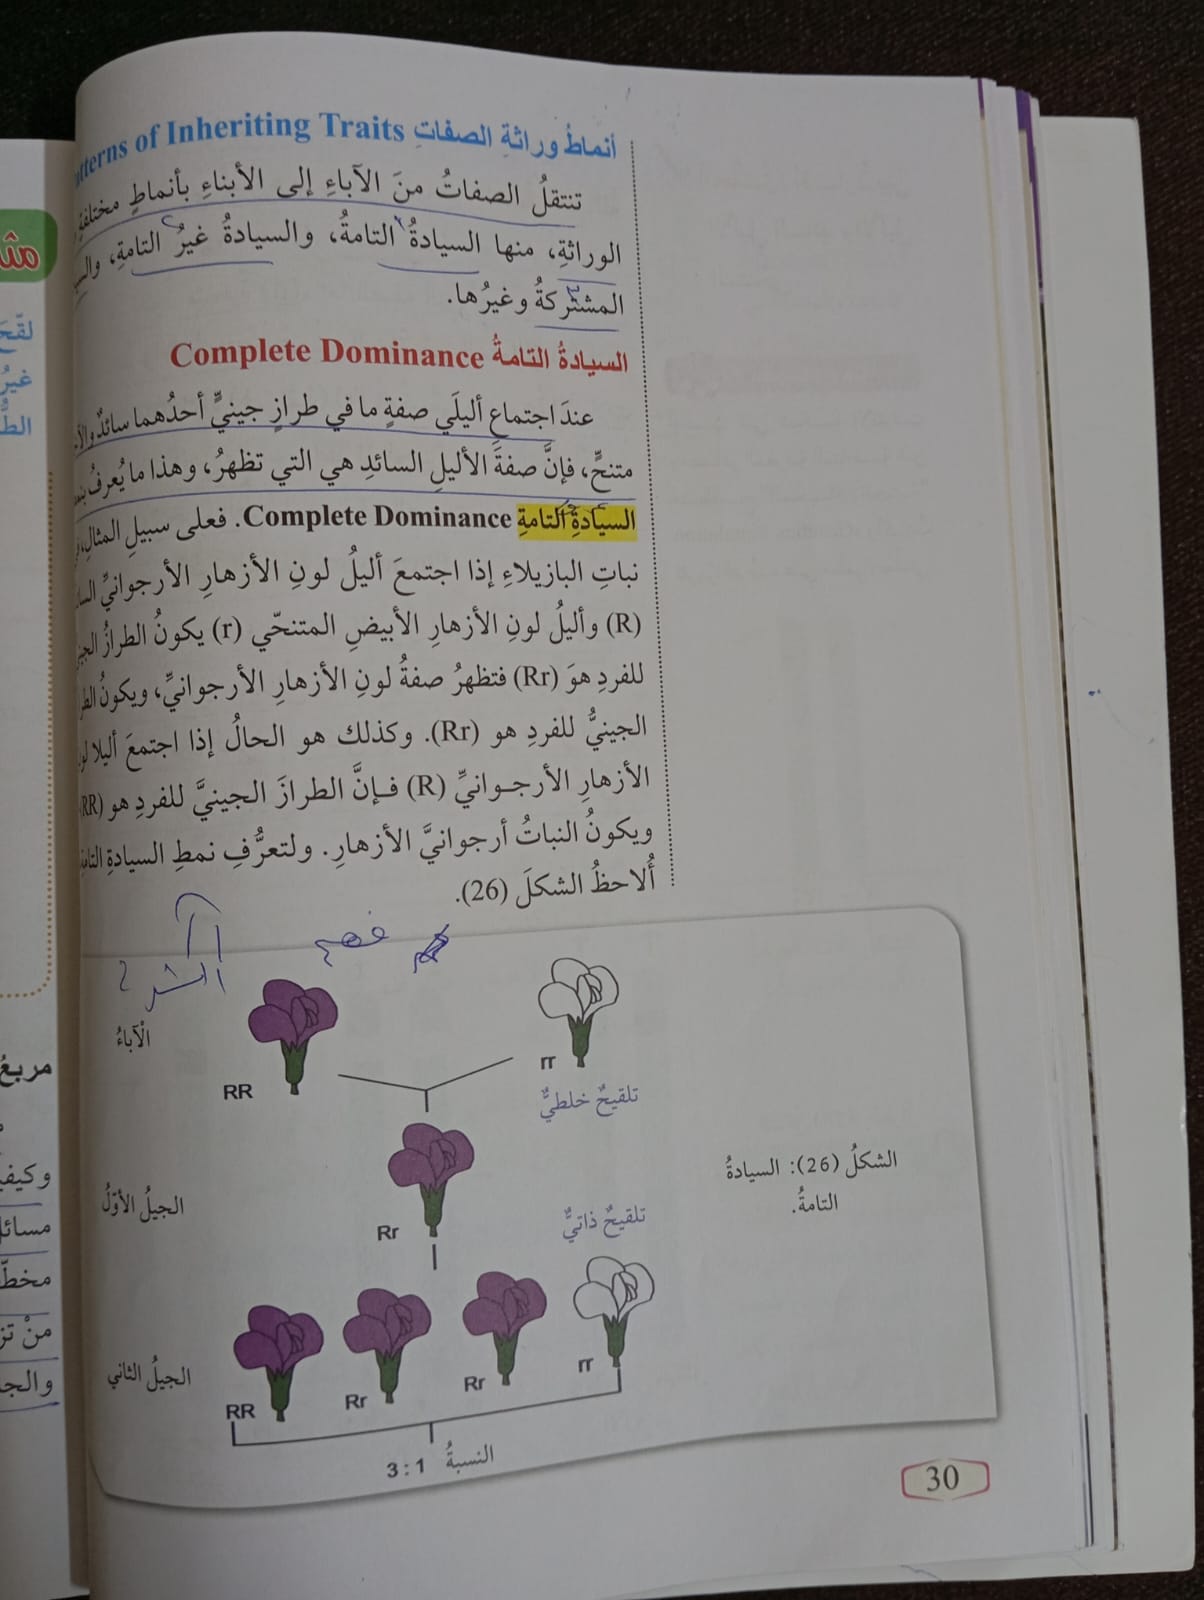 أنماطُ وراثةِ الصفاتِ of Inheriting Traits
تنتقلُ الصفاتُ منَ الآباءِ إلى الأبناءِ بأنماطٍ مختلفةٍ
الوراثةِ، منها السيادةُ التامةُ، والسيادةُ غيرُ التامةِ،
المشتركةُ وغيرُها.
السيادةُ التامةُ Complete Dominance
عندَ اجتماعِ أليلَي صفةٍ ما في طرازٍ جينيٍّ أحدُهما سائدٌ
متنحٍّ، فإنَّ صفةَ الأليلِ السائدِ هي التي تظهرُ، وهذا ما يُعرفُ
السيادةِ التامةِ Complete Dominance. فعلى سبيلِ المثالِ،
نباتِ البازيلاءِ إذا اجتمعَ أليلُ لونِ الأزهارِ الأرجوانيِّ
(R) وأليلُ لونِ الأزهارِ الأبيضِ المتنحّي (r) يكونُ الطرازُ
للفردِ هوَ (Rr) فتظهرُ صفةُ لونِ الأزهارِ الأرجوانيِّ، ويكونُ
الجينيُّ للفردِ هو (Rr). وكذلك هو الحالُ إذا اجتمعَ أليلا
الأزهارِ الأرجوانيِّ (R) فإنَّ الطرازَ الجينيَّ للفردِ هو (RR
ويكونُ النباتُ أرجوانيَّ الأزهارِ. ولتعرُّفِ نمطِ السيادةِ التامةِ
أُلاحظُ الشكلَ (26).
فهم
الآباءُ
RR
rr
تلقيحٌ خلطيٌّ
الجيلُ الأوّلُ
Rr
تلقيحٌ ذاتيٌّ
الجيلُ الثاني
RR
Rr
Rr
rr
النسبةُ 3 : 1
الشكلُ (26): السيادةُ
التامةُ.
30
مربعُ
مسائل